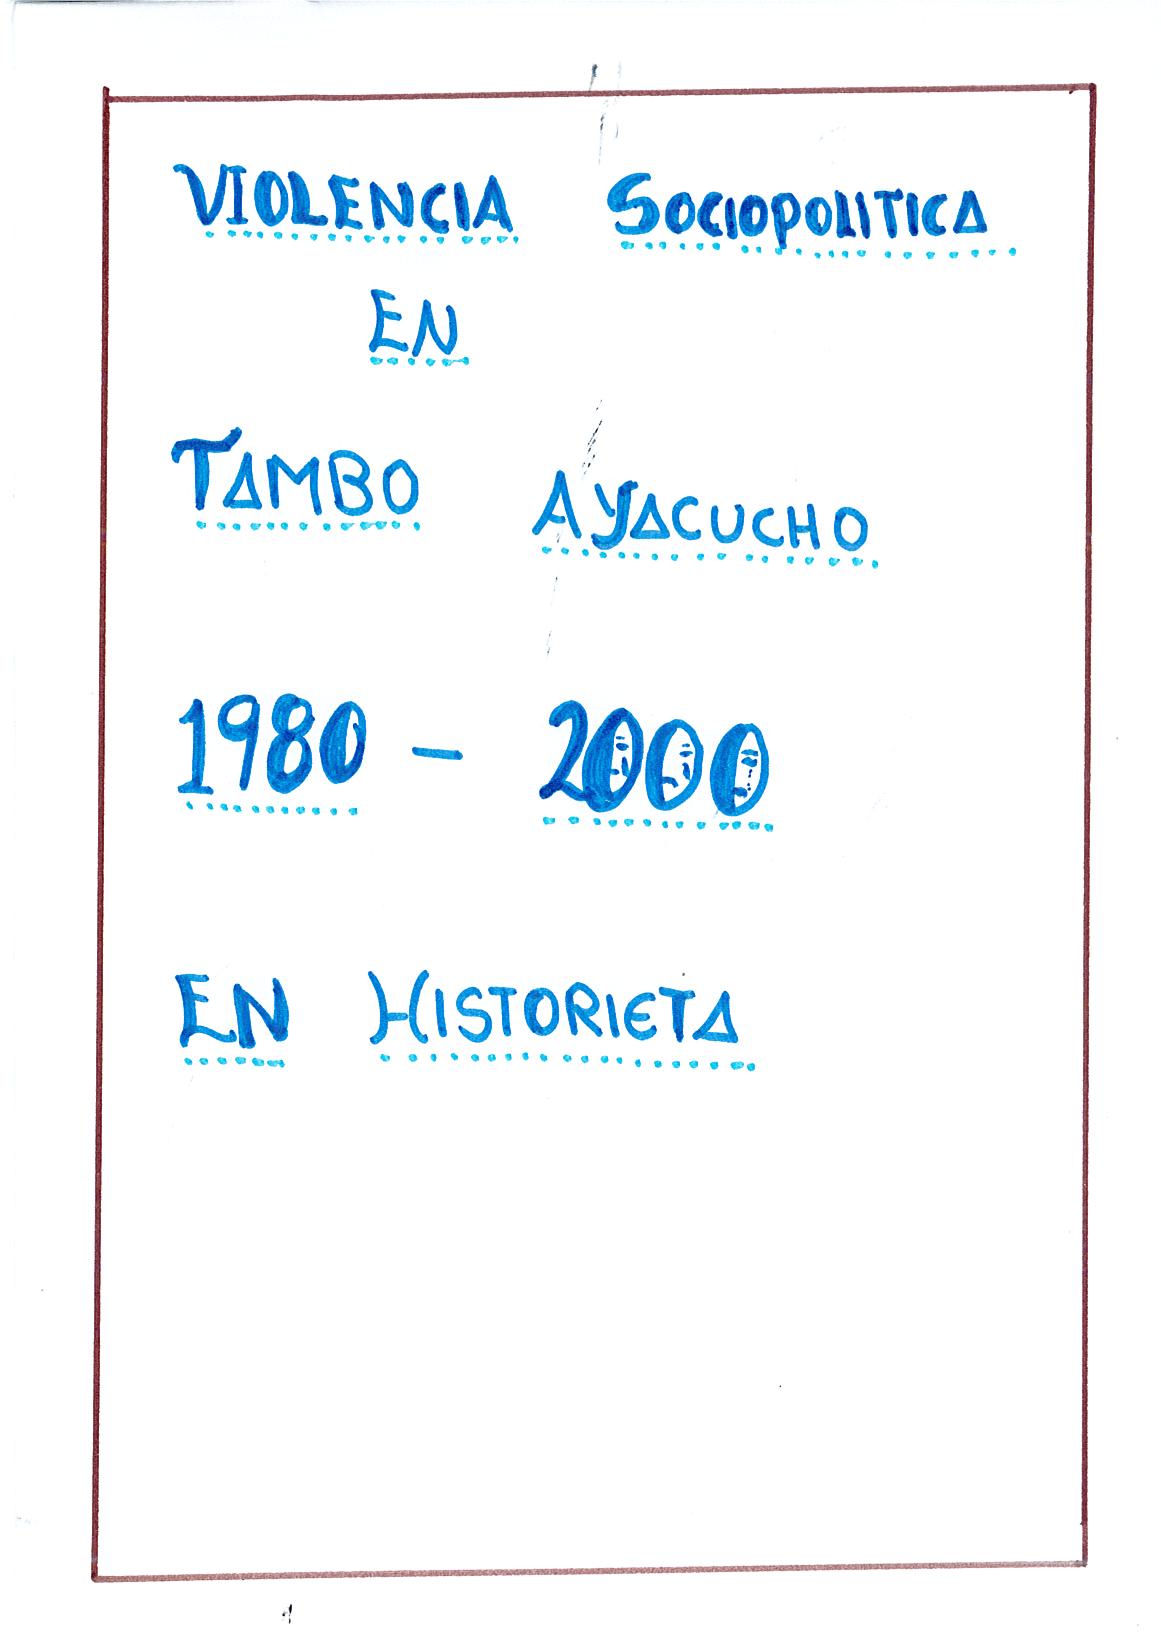 VIOLENCIA SOCIOPOLITICA
EN
TAMBO AYACUCHO
1980 - 2000
EN HISTORIETA
1